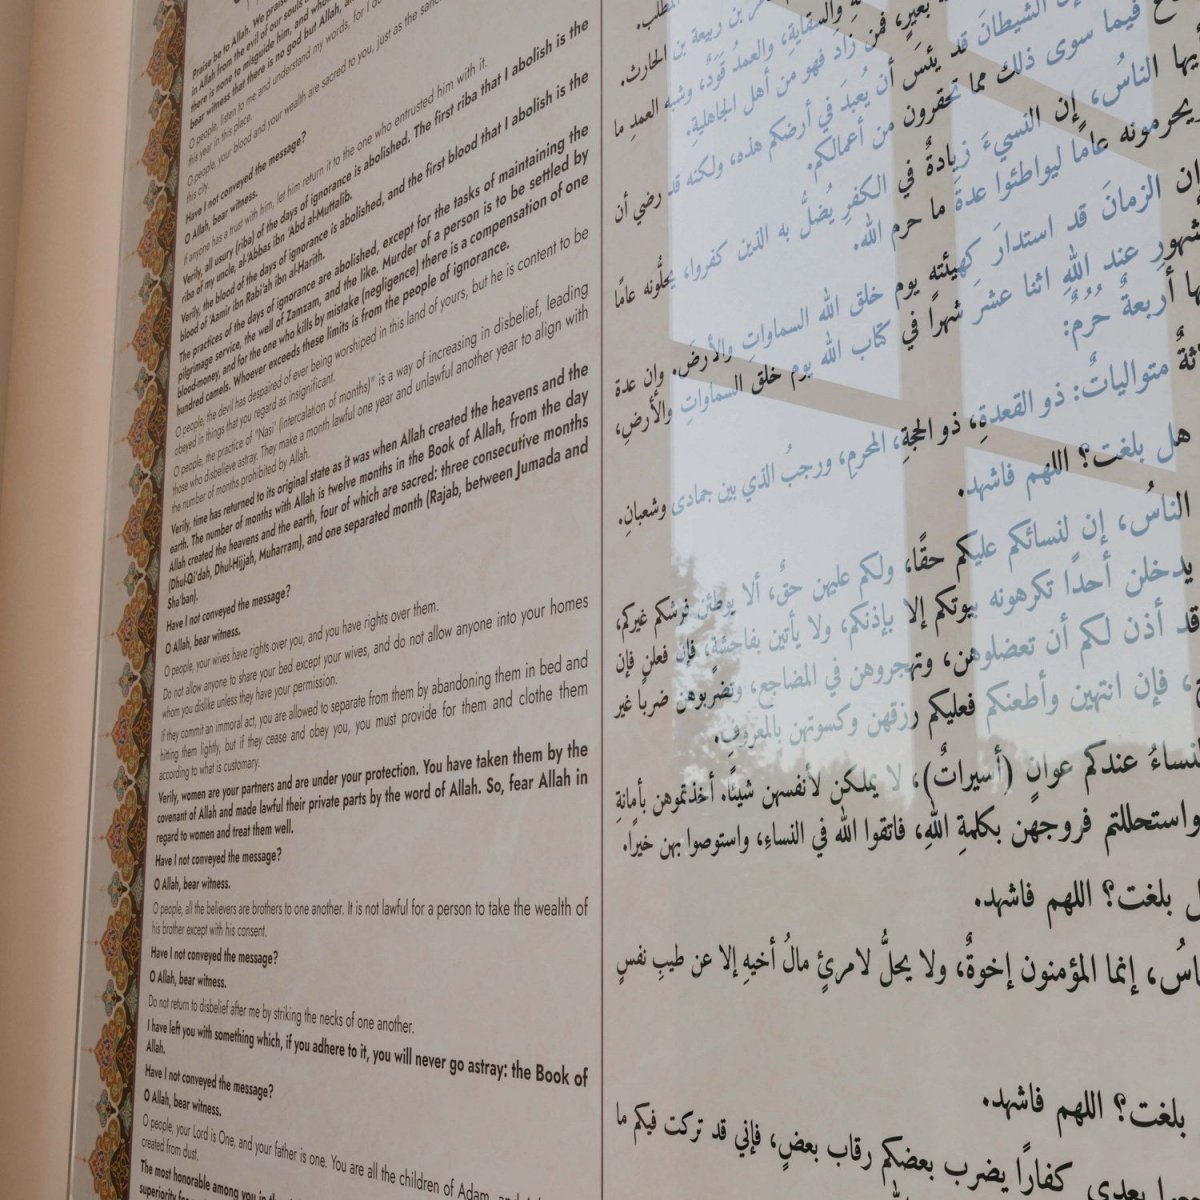 Praise be to Allah. We praise
in Allah from the evil of our souls
there is none to misguide him, and who
bear witness that there is no god but Allah, a
O people, listen to me and understand my words, for I do
this year in this place.
O people, your blood and your wealth are sacred to you, just as the sanc
this city.
Have I not conveyed the message?
O Allah, bear witness.
If anyone has a trust with him, let him return it to the one who entrusted him with it.
Verily, all usury (riba) of the days of ignorance is abolished. The first riba that I abolish is the
riba of my uncle, al-'Abbas ibn 'Abd al-Muttalib.
Verily, the blood of the days of ignorance is abolished, and the first blood that I abolish is the
blood of 'Aamir ibn Rabi'ah ibn al-Harith.
The practices of the days of ignorance are abolished, except for the tasks of maintaining the
pilgrimage service, the well of Zamzam, and the like. Murder of a person is to be settled by
blood-money, and for the one who kills by mistake (negligence) there is a compensation of one
hundred camels. Whoever exceeds these limits is from the people of ignorance.
O people, the devil has despaired of ever being worshiped in this land of yours, but he is content to be
obeyed in things that you regard as insignificant.
O people, the practice of "Nasi' (intercalation of months)" is a way of increasing in disbelief, leading
those who disbelieve astray. They make a month lawful one year and unlawful another year to align with
the number of months prohibited by Allah.
Verily, time has returned to its original state as it was when Allah created the heavens and the
earth. The number of months with Allah is twelve months in the Book of Allah, from the day
Allah created the heavens and the earth, four of which are sacred: three consecutive months
(Dhul-Qi'dah, Dhul-Hijjah, Muharram), and one separated month (Rajab, between Jumada and
Sha'ban).
Have I not conveyed the message?
O Allah, bear witness.
O people, your wives have rights over you, and you have rights over them.
Do not allow anyone to share your bed except your wives, and do not allow anyone into your homes
whom you dislike unless they have your permission.
If they commit an immoral act, you are allowed to separate from them by abandoning them in bed and
hitting them lightly, but if they cease and obey you, you must provide for them and clothe them
according to what is customary.
Verily, women are your partners and are under your protection. You have taken them by the
covenant of Allah and made lawful their private parts by the word of Allah. So, fear Allah in
regard to women and treat them well.
Have I not conveyed the message?
O Allah, bear witness.
O people, all the believers are brothers to one another. It is not lawful for a person to take the wealth of
his brother except with his consent.
Have I not conveyed the message?
O Allah, bear witness.
Do not return to disbelief after me by striking the necks of one another.
I have left you with something which, if you adhere to it, you will never go astray: the Book of
Allah.
Have I not conveyed the message?
O Allah, bear witness.
O people, your Lord is One, and your father is one. You are all the children of Adam,
created from dust.
The most honorable among you in th
superiority fo
المطلب.
بن ربيعة بن الحارث.
والسقايةِ، والعمدُ قَوَدٌ، وشبه العمدِ ما
بعيرٍ، فمن زادَ فهو من أهل الجاهليةِ.
الشيطانَ قد يئسَ أن يُعبدَ في أرضكم هذه، ولكنه قد رضي أن
فيما سوى ذلك مما تحقرون من أعمالكم.
أيها الناسُ، إن النسيءَ زيادةٌ في الكفرِ يُضلُّ به الذين كفروا، يحلُّونه عامًا
ويحرمونه عامًا ليواطئوا عدةَ ما حرم الله.
إن الزمانَ قد استدارَ كهيئته يوم خلق الله السماواتِ والأرضَ. وإن عدة
الشهورِ عند اللهِ اثنا عشر شهرًا في كتاب الله يوم خلق السماواتِ والأرضِ،
أربعةٌ حُرُمٌ:
متوالياتٌ: ذو القعدةِ، ذو الحجةِ، المحرمِ، ورجبُ الذي بين جمادى وشعبانِ.
هل بلغت؟ اللهم فاشهد.
الناسُ، إن لنسائكم عليكم حقًا، ولكم عليهن حقٌ، ألا يوطئن فرشكم غيركم،
يدخلن أحدًا تكرهونه بيوتكم إلا بإذنكم، ولا يأتين بفاحشةٍ، فإن فعلن فإن
قد أذن لكم أن تعضلوهن، وتهجروهن في المضاجع، وتضربوهن ضربًا غير
، فإن انتهين وأطعنكم فعليكم رزقهن وكسوتهن بالمعروفِ.
النساءُ عندكم عوانٍ (أسيراتٌ)، لا يملكن لأنفسهن شيئًا. أخذتموهن بأمانةِ
واستحللتم فروجهن بكلمةِ اللهِ، فاتقوا الله في النساءِ، واستوصوا بهن خيرًا.
بلغت؟ اللهم فاشهد.
، إنما المؤمنون إخوةٌ، ولا يحلُّ لامرئٍ مالُ أخيهِ إلا عن طيبِ نفسٍ
بلغت؟ اللهم فاشهد.
بعدي كفارًا يضرب بعضكم رقاب بعضٍ، فإني قد تركت فيكم ما